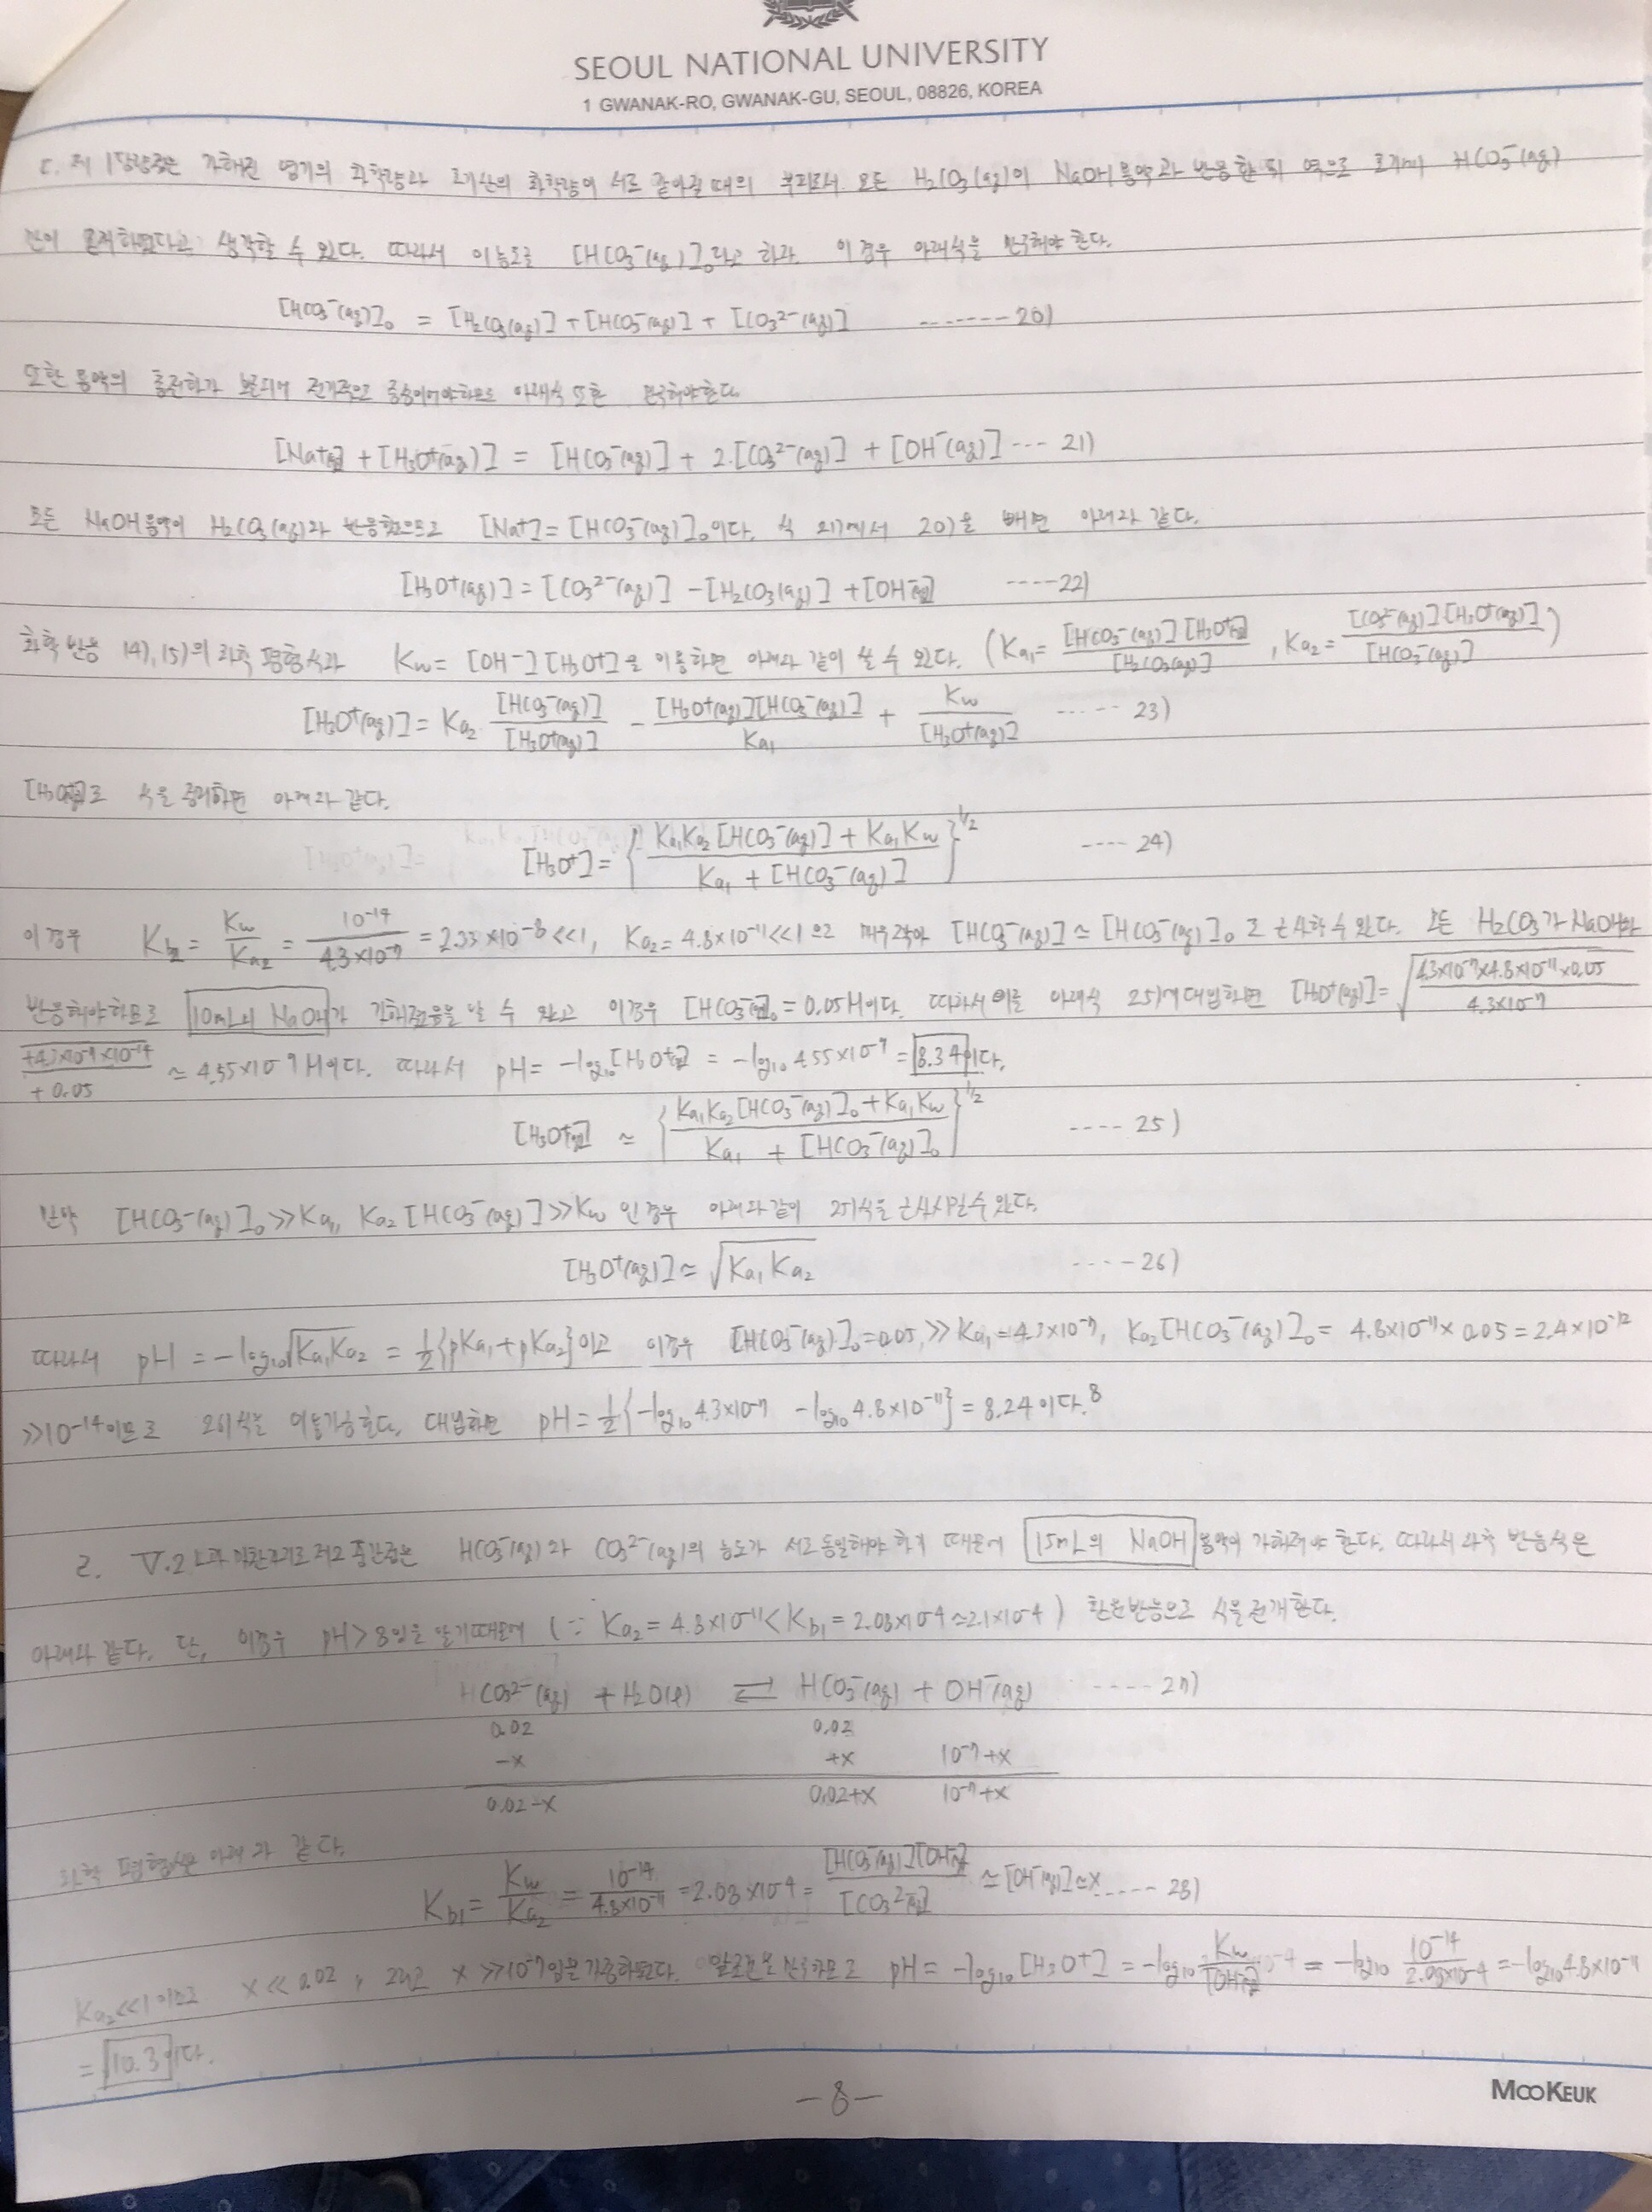 SEOUL NATIONAL UNIVERSITY
1 GWANAK-RO, GWANAK-GU, SEOUL, 08826, KOREA
ㄷ. 제 1당량점은 가해진 염기의 화학량과 초기산의 화학량이 서로 같아질 때의 부피로서 모든 H₂CO₃(aq)이 NaOH용액과 반응한 뒤 역으로 초기에 HCO₃⁻(aq)
만이 존재하였다고 생각할 수 있다. 따라서 이 농도를 [HCO₃⁻(aq)]₀라고 하자. 이 경우 아래식을 만족해야 한다.
[HCO₃⁻(aq)]₀ = [H₂CO₃(aq)] + [HCO₃⁻(aq)] + [CO₃²⁻(aq)] ------- 20)
또한 용액의 총전하가 보존되어 전기적으로 중성이어야하므로 아래식 또한 만족해야한다.
[Na⁺(aq)] + [H₃O⁺(aq)] = [HCO₃⁻(aq)] + 2·[CO₃²⁻(aq)] + [OH⁻(aq)] ---- 21)
모든 NaOH용액이 H₂CO₃(aq)와 반응했으므로 [Na⁺] = [HCO₃⁻(aq)]₀이다. 식 21)에서 20)을 빼면 아래와 같다.
[H₃O⁺(aq)] = [CO₃²⁻(aq)] - [H₂CO₃(aq)] + [OH⁻(aq)] ----- 22)
화학 반응 14), 15)의 화학 평형식과 Kw = [OH⁻][H₃O⁺]을 이용하면 아래와 같이 쓸 수 있다. (Ka₁ = [HCO₃⁻(aq)][H₃O⁺(aq)] / [H₂CO₃(aq)], Ka₂ = [CO₃²⁻(aq)][H₃O⁺(aq)] / [HCO₃⁻(aq)])
[H₃O⁺(aq)] = Ka₂ [HCO₃⁻(aq)] / [H₃O⁺(aq)] - [H₃O⁺(aq)][HCO₃⁻(aq)] / Ka₁ + Kw / [H₃O⁺(aq)] ------ 23)
[H₃O⁺(aq)]로 식을 정리하면 아래와 같다.
[H₃O⁺] = {(Ka₁Ka₂[HCO₃⁻(aq)] + Ka₁Kw) / (Ka₁ + [HCO₃⁻(aq)])}^1/2 ---- 24)
이 경우 Kb₂ = Kw / Ka₂ = 10⁻¹⁴ / 4.3×10⁻⁷ = 2.33×10⁻⁸ <<1, Ka₂ = 4.8×10⁻¹¹ <<1 으로 매우작아 [HCO₃⁻(aq)] ≃ [HCO₃⁻(aq)]₀ 로 근사할 수 있다. 모든 H₂CO₃가 NaOH와
반응해야하므로 10mL의 NaOH가 가해졌음을 알 수 있고 이경우 [HCO₃⁻(aq)]₀ = 0.05M이다. 따라서 이를 아래식 25)에 대입하면 [H₃O⁺(aq)] = √ 4.3×10⁻⁷×4.8×10⁻¹¹×0.05 / 4.3×10⁻⁷
+4.3×10⁻⁷×10⁻¹⁴ / + 0.05 ≃ 4.55×10⁻⁹ M이다. 따라서 pH = -log₁₀[H₃O⁺(aq)] = -log₁₀ 4.55×10⁻⁹ = 8.34이다.
[H₃O⁺(aq)] ≃ {(Ka₁Ka₂[HCO₃⁻(aq)]₀ + Ka₁Kw) / (Ka₁ + [HCO₃⁻(aq)]₀)}^1/2 ---- 25)
만약 [HCO₃⁻(aq)]₀ >> Ka₁, Ka₂[HCO₃⁻(aq)] >> Kw 인경우 아래와 같이 25)식을 근사시킬수 있다.
[H₃O⁺(aq)] ≃ √Ka₁Ka₂ ---- 26)
따라서 pH = -log₁₀√Ka₁Ka₂ = 1/2{pKa₁ + pKa₂}이고 이경우 [HCO₃⁻(aq)]₀ = 0.05, >> Ka₁ = 4.3×10⁻⁷, Ka₂[HCO₃⁻(aq)]₀ = 4.8×10⁻¹¹ × 0.05 = 2.4×10⁻¹²
>> 10⁻¹⁴이므로 26)식을 이용가능하다. 대입하면 pH = 1/2{-log₁₀4.3×10⁻⁷ - log₁₀4.8×10⁻¹¹} = 8.24이다.⁸
ㄹ. V.2 ㄴ과 마찬가지로 제2 중간점은 HCO₃⁻(aq)와 CO₃²⁻(aq)의 농도가 서로 동일해야 하기 때문에 15mL의 NaOH 용액이 가해져야 한다. 따라서 화학 반응식은
아래와 같다. 단, 이경우 pH > 8임을 알기때문에 (∵ Ka₂ = 4.8×10⁻¹¹ < Kb₁ = 2.08×10⁻⁴ ≃ 2.1×10⁻⁴) 환원반응으로 식을 전개한다.
CO₃²⁻(aq) + H₂O(l) ⇄ HCO₃⁻(aq) + OH⁻(aq) ---- 27)
0.02 0.02
-x +x 10⁻⁷+x
0.02-x 0.02+x 10⁻⁷+x
화학 평형식은 아래와 같다.
Kb₁ = Kw / Ka₂ = 10⁻¹⁴ / 4.8×10⁻¹¹ = 2.08×10⁻⁴ = [HCO₃⁻(aq)][OH⁻(aq)] / [CO₃²⁻(aq)] ≃ [OH⁻(aq)] ≃ x ----- 28)
Ka₂ <<1 이므로 x << 0.02, 그리고 x >> 10⁻⁷임을 가정하였다. 만족하므로 pH = -log₁₀[H₃O⁺] = -log₁₀ Kw / [OH⁻(aq)] = -log₁₀ 10⁻¹⁴ / 2.08×10⁻⁴ = -log₁₀4.8×10⁻¹¹
= 10.3이다.
-8-
MOOKEUK